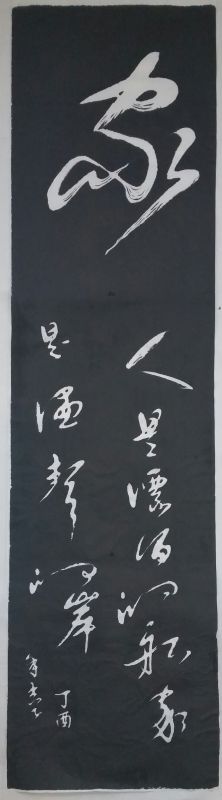 家
人是漂泊的船家
是温馨的岸
丁酉